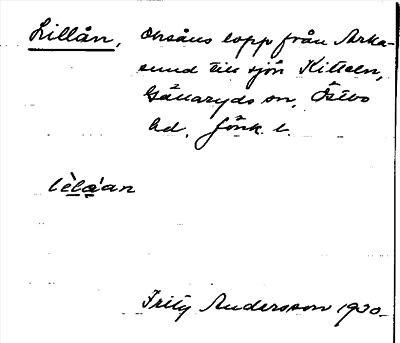 Lillån, Oxåns lopp från Arka-
sund till sjön Kitteln,
Gällaryds sn, Östbo
hd, Jönk. l.
Fritz Andersson 1930